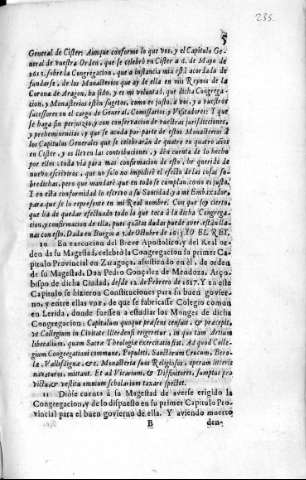 235.
5
General de Cister: Aunque conforme lo que vos, y el Capitulo Ge-
neral de vuestra Orden, que se celebrò en Cister a 4. de Mayo de
1615. sobre la Congregacion, que a instancia mia està acordada de
fundarse, de los Monasterios que ay de ella en mi Reynos de la
Corona de Aragon, ha sido, y es mi voluntad, que dicha Congrega-
cion, y Monasterios estèn sugetos, como es justo, a vos, y a vuestros
sucessores en el cargo de General, Comissarios y Visitadores: Y que
se haga sin perjuyzio, y con conservacion de vuestras jurisdicciones,
y prehemiuencias: y que se acuda por parte de estos Monasterios à
los Capitulos Generales que se celebraràn de quatro en quatro años
en Cister, y os lleven las contribuciones, y den cuenta de lo hecho
por ellos cada via para mas confirmacion de esto, he querido de
nuevo escriviros, que no solo no impidireis el efecto de las cosas so-
bredichas, pero que mandareis que en todo se cumplan, como es justo.
Y en esta conformidad lo escrivo a su Santidad, y a mi Embaxador,
para que se lo represente en mi Real nombre. Con que soy cierto,
que ha de quedar efectuado todo lo que toca à la dicha Congrega-
cion, y confirmacion de ella, pues quitan dudas puede aver estàn lla-
nas con esto. Dada en Burgos a 5. de Octubre de 1615. YO EL REY.
10 En execucion del Breve Apostolico, y del Real or-
den de su Magestad, celebrò la Congregacion su primer
Capitulo Provincial en Zaragoça, assistiendo en èl, de orden
de su Magestad, Don Pedro Gonçalez de Mendoza, Arço-
bispo de dicha Ciudad, desde 12. de Febrero de 1617. Y en este
Capitulo se hizieron Constituciones para su buen govier-
no, y entre ellas vna, de que se fabricasse Colegio comun
en Lerida, donde fuessen a estudiar los Monges de dicha
Congregacion: Capitulum quoque præsens censuit, & præcepit,
ut Collegium in Civitate Illerdensi erigeretur, in quo tam Artium
liberalium, quam Sacræ Theologiæ exercitatio fiat. Ad quod Colle-
gium Congregationi commune, Populeti, Sanctarum Crucum, Berò-
la, Valldigna, &c. Monasteria suos Religiosos, operam literis
navaturos, mittant. Et ad Vicarium, & Diffinitores, sumptus pro-
victu, & vestitu omnium scholarium taxare spectet.
11 Diòse cuenta à su Magestad de averse erigido la
Congregacion, y de lo dispuesto en su primer Capitulo Pro-
vincial para el buen govierno de ella. Y aviendo muerto
B
den-